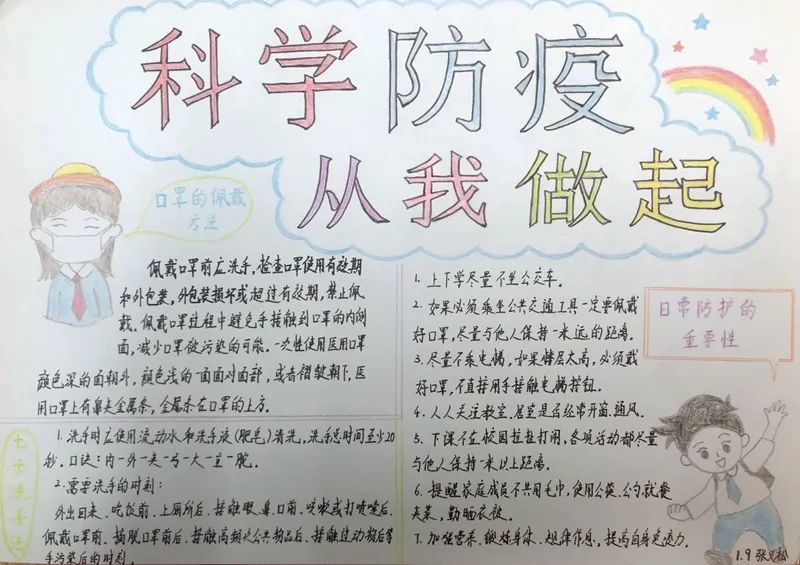 科学防疫
从我做起
口罩的佩戴
方法
佩戴口罩前应洗手,检查口罩使用有效期
和外包装,外包装损坏或超过有效期,禁止佩
戴。佩戴口罩过程中避免手接触到口罩的内侧
面,减少口罩被污染的可能。一次性使用医用口罩
颜色深的面朝外,颜色浅的一面面对面部,或者褶皱朝下,医
用口罩上有鼻夹金属条,金属条在口罩的上方。
七步洗手法
1.洗手时应使用流动水和洗手液(肥皂)清洗,洗手总时间至少20
秒。口诀:内-外-夹-弓-大-立-腕。
2.需要洗手的时刻:
外出回来、吃饭前、上厕所后、接触眼鼻口前、咳嗽或打喷嚏后、
佩戴口罩前、摘脱口罩前后、接触高频次公共物品后、接触过动物后等
手污染后的时刻。
日常防护的
重要性
1. 上下学尽量不坐公交车。
2. 如果必须乘坐公共交通工具一定要佩戴
好口罩,尽量与他人保持一米远的距离。
3. 尽量不乘电梯,如果楼层太高,必须戴
好口罩,不直接用手接触电梯按钮。
4. 人人关注教室、居室是否经常开窗、通风。
5. 下课不在校园拉扯打闹,各项活动都尽量
与他人保持一米以上距离。
6. 提醒家庭成员不共用毛巾,使用公筷、公勺就餐
夹菜,勤晒衣被。
7. 加强营养、锻炼身体、规律作息,提高自身免疫力。
1.9 张